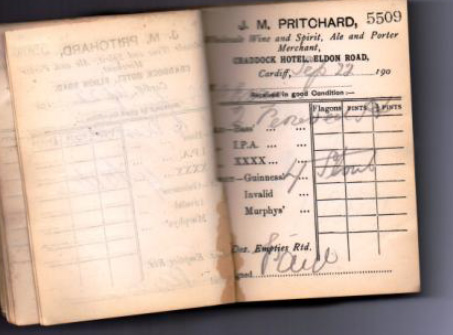 J. M. PRITCHARD, 5509
Wholesale Wine and Spirit, Ale and Porter
Merchant,
CRADDOCK HOTEL, ELDON ROAD,
Cardiff, Sep 22 190
Received in good Condition :—
Flagons PINTS ½ PINTS
Bass' ... ...
I.P.A. ... ...
XXXX... ...
—Guinness' ... 4 Stout
Invalid ...
Murphys' ...
Doz. Empties Rtd.